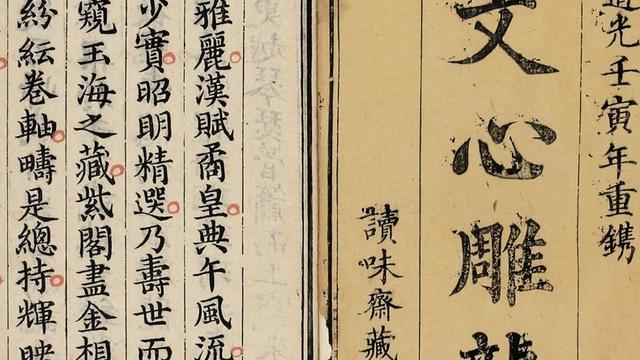 道光壬寅年重鐫
文心雕龍
讀味齋藏
雅麗漢賦矞皇典午風流
少實昭明精選乃壽世而
窺玉海之藏紫閣盡金相
紛紜卷軸疇是總持輝映